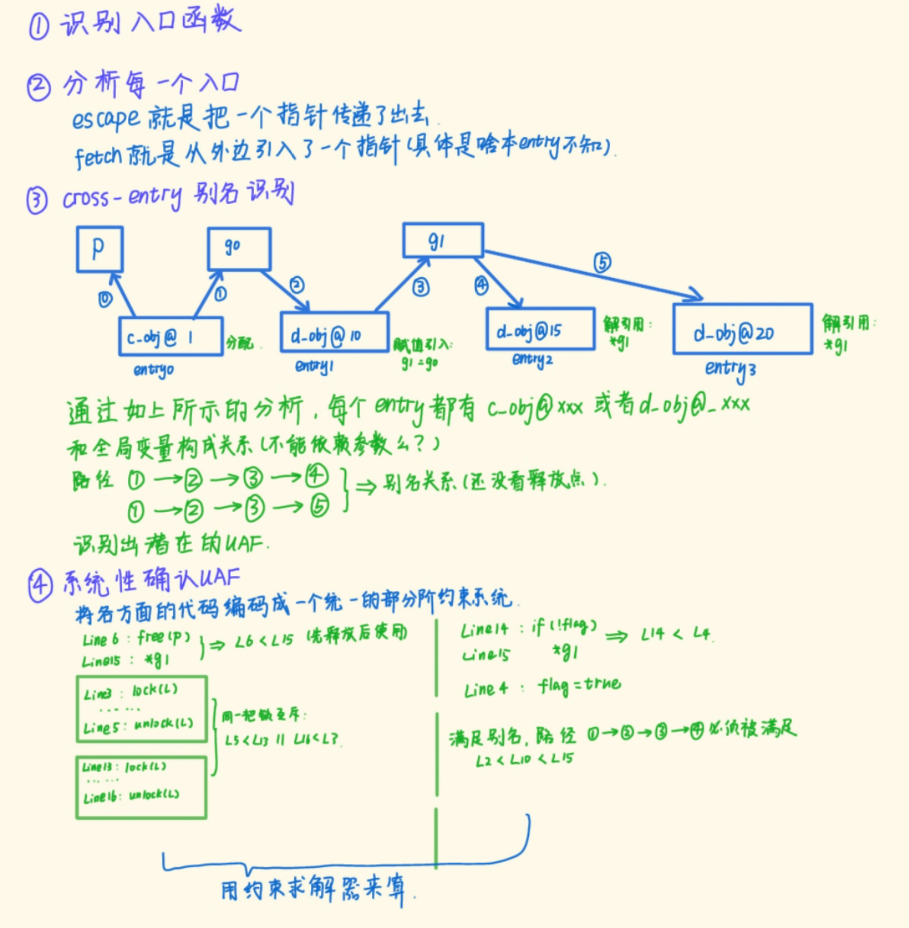 ① 识别入口函数
② 分析每一个入口
escape 就是把一个指针传递了出去.
fetch就是从外边引入了一个指针(具体是啥本entry不知).
③ cross-entry 别名识别
p
g0
g1
⓪
①
②
③
④
⑤
c_obj@ 1
分配.
entry0
d_obj@10
赋值引入:
g1=g0
entry1
d_obj@15
解引用:
*g1
entry2
d_obj@20
解引用:
*g1
entry3
通过如上所示的分析, 每个entry都有 c_obj@xxx 或者d_obj@_xxx
和全局变量构成关系(不能依赖参数么?)
路径 ①→②→③→④
①→②→③→⑤
⇒ 别名关系(还没看释放点).
识别出潜在的UAF.
④ 系统性确认UAF
将各方面的代码编码成一个统一的部分阶约束系统.
Line 6 : free(p)
Line15 : *g1
⇒ L6 < L15 (先释放后使用)
Line3 : lock(L)
……
Line5 : unlock(L)
Line13 : lock(L)
……
Line16 : unlock(L)
同一把锁互斥:
L5<L13 || L16<L3
Line14 : if(!flag)
Line15 *g1
⇒ L14 < L4.
Line4 : flag=true
满足别名, 路径 ①→②→③→④必须被满足
L2<L10<L15
用约束求解器来算.